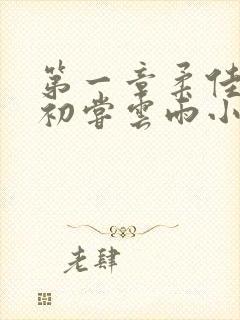 第一章柔佳
初尝云雨小
老肆